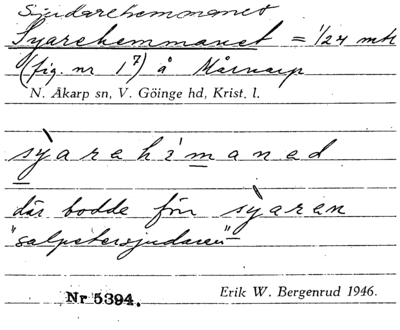 Sjudarehemmanet
Syarehemmanet = 1/24 mtl
(fig. nr 1⁷) å Mårnarp
N. Åkarp sn, V. Göinge hd, Krist. l.
sỳarehìmanad
där bodde för sỳaren
"salpetersjudaren"
Nr 5394.
Erik W. Bergenrud 1946.